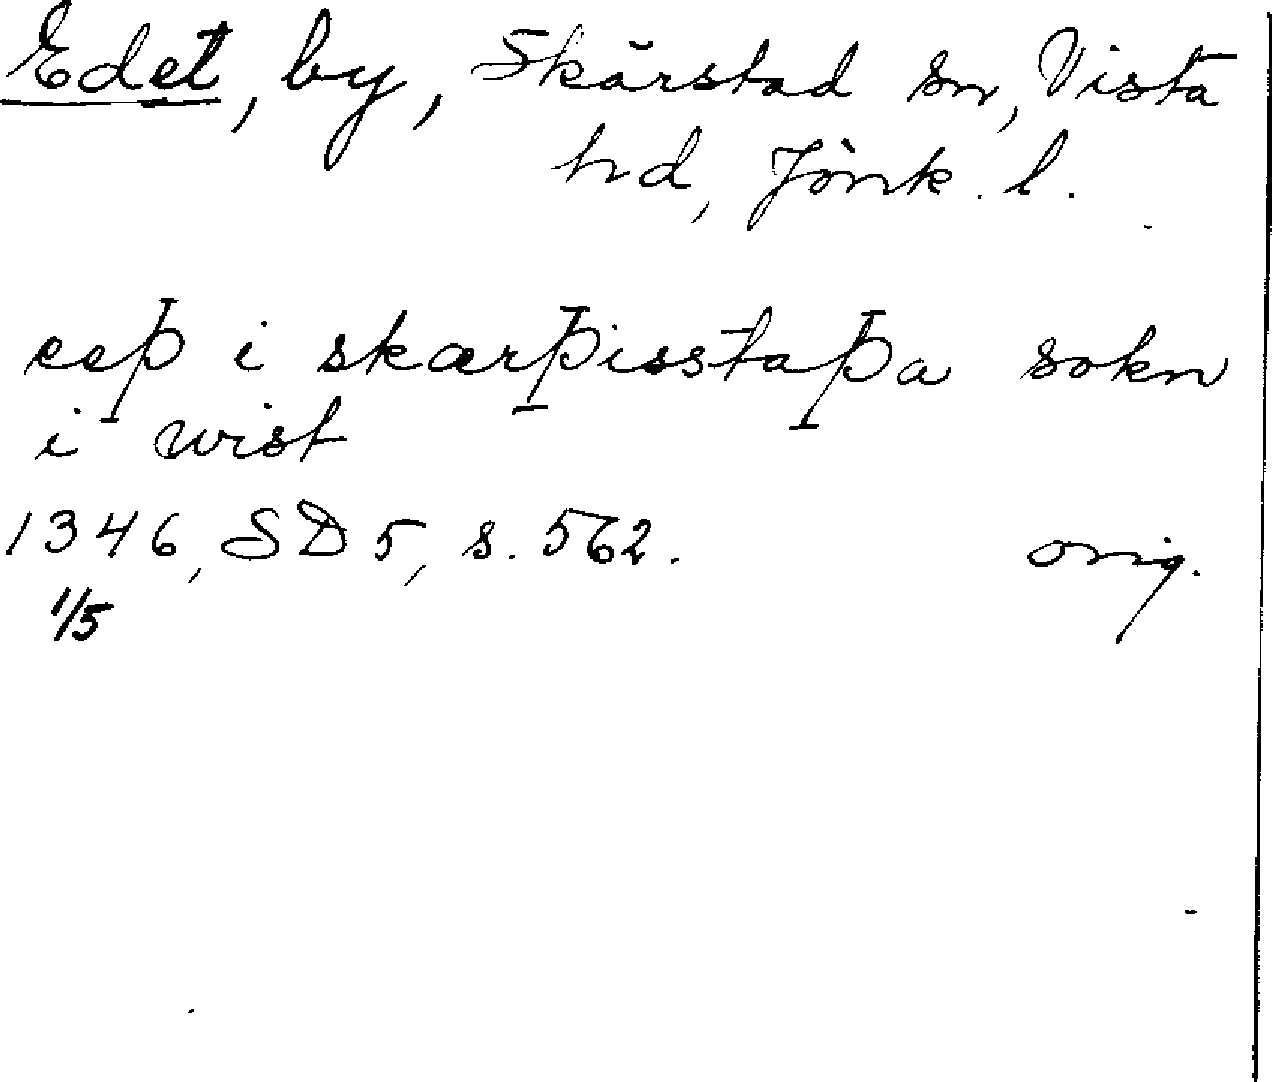 Edet, by, Skärstad sn, Vista
hd, Jönk. l.
eeþ i skærþisstaþa sokn
i wist
1346, SD 5, s. 562. orig.
1/5